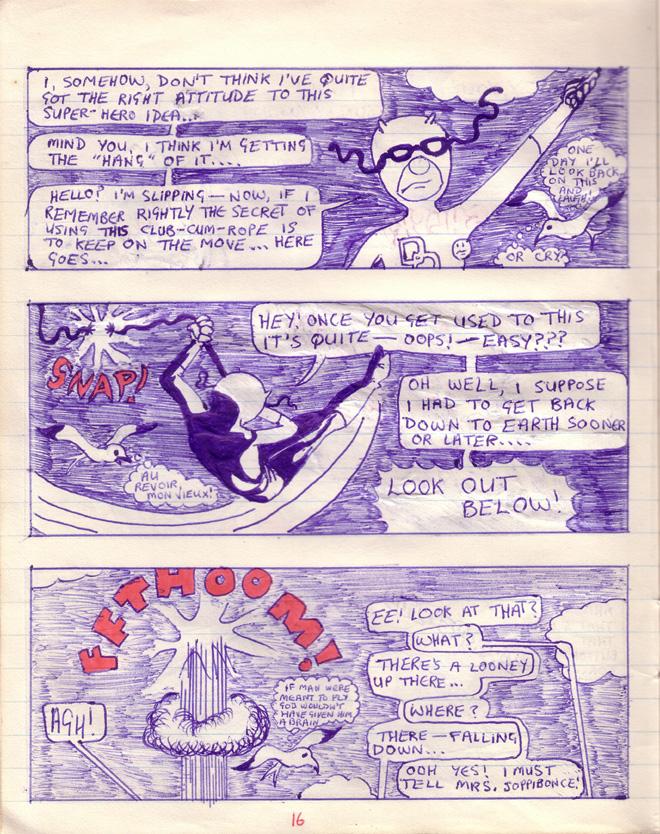 I, SOMEHOW, DON'T THINK I'VE QUITE
GOT THE RIGHT ATTITUDE TO THIS
SUPER-HERO IDEA...
MIND YOU, I THINK I'M GETTING
THE "HANG" OF IT....
HELLO? I'M SLIPPING — NOW, IF I
REMEMBER RIGHTLY THE SECRET OF
USING THIS CLUB-CUM-ROPE IS
TO KEEP ON THE MOVE... HERE
GOES...
ONE
DAY I'LL
LOOK BACK
ON THIS
AND I
LAUGH
OR CRY
SNAP!
HEY! ONCE YOU GET USED TO THIS
IT'S QUITE — OOPS! — EASY???
OH WELL, I SUPPOSE
I HAD TO GET BACK
DOWN TO EARTH SOONER
OR LATER....
LOOK OUT
BELOW!
AU
REVOIR,
MON VIEUX!
FFTHOOM!
AGH!
IF MAN WERE
MEANT TO FLY
GOD WOULDN'T
HAVE GIVEN HIM
A BRAIN
EE! LOOK AT THAT?
WHAT?
THERE'S A LOONEY
UP THERE...
WHERE?
THERE — FALLING
DOWN...
OOH YES! I MUST
TELL MRS. JOPPIBONCE!
16